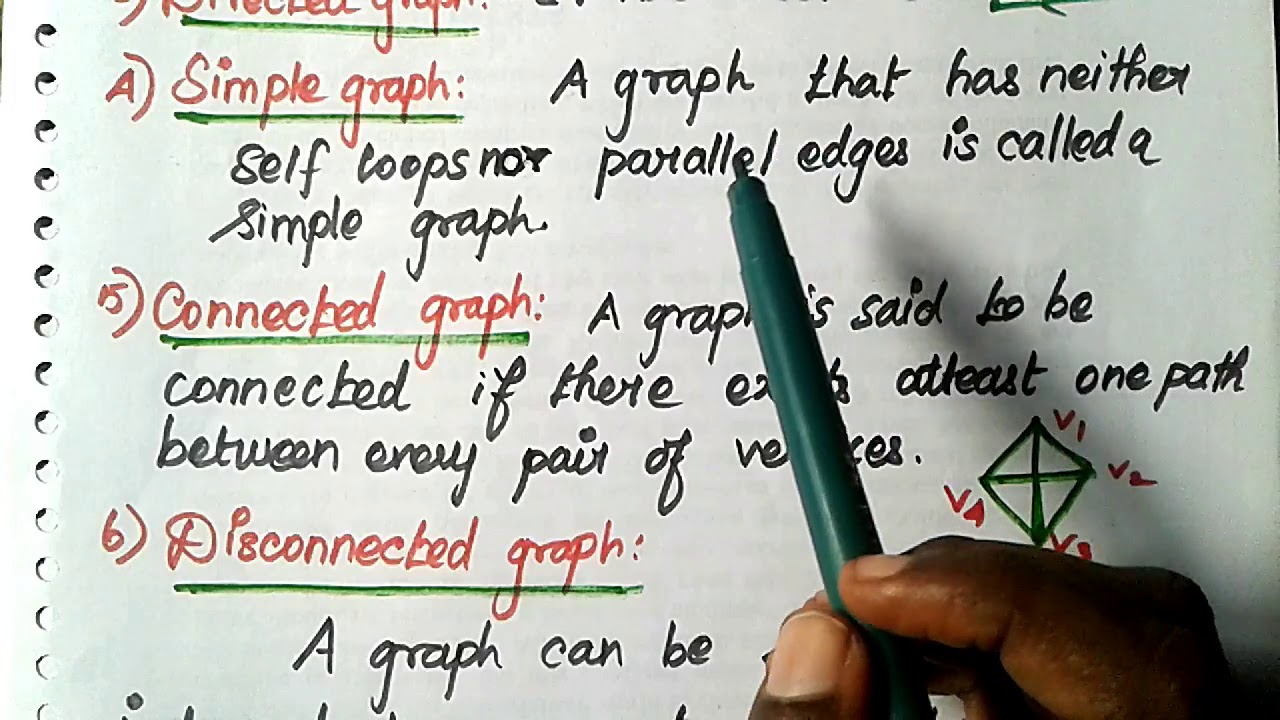 3) Directed graph:
4) Simple graph: A graph that has neither
self loops nor parallel edges is called a
simple graph.
5) Connected graph: A graph is said to be
connected if there exists atleast one path
between every pair of vertices.
V1
V2
V4
V3
6) Disconnected graph:
A graph can be